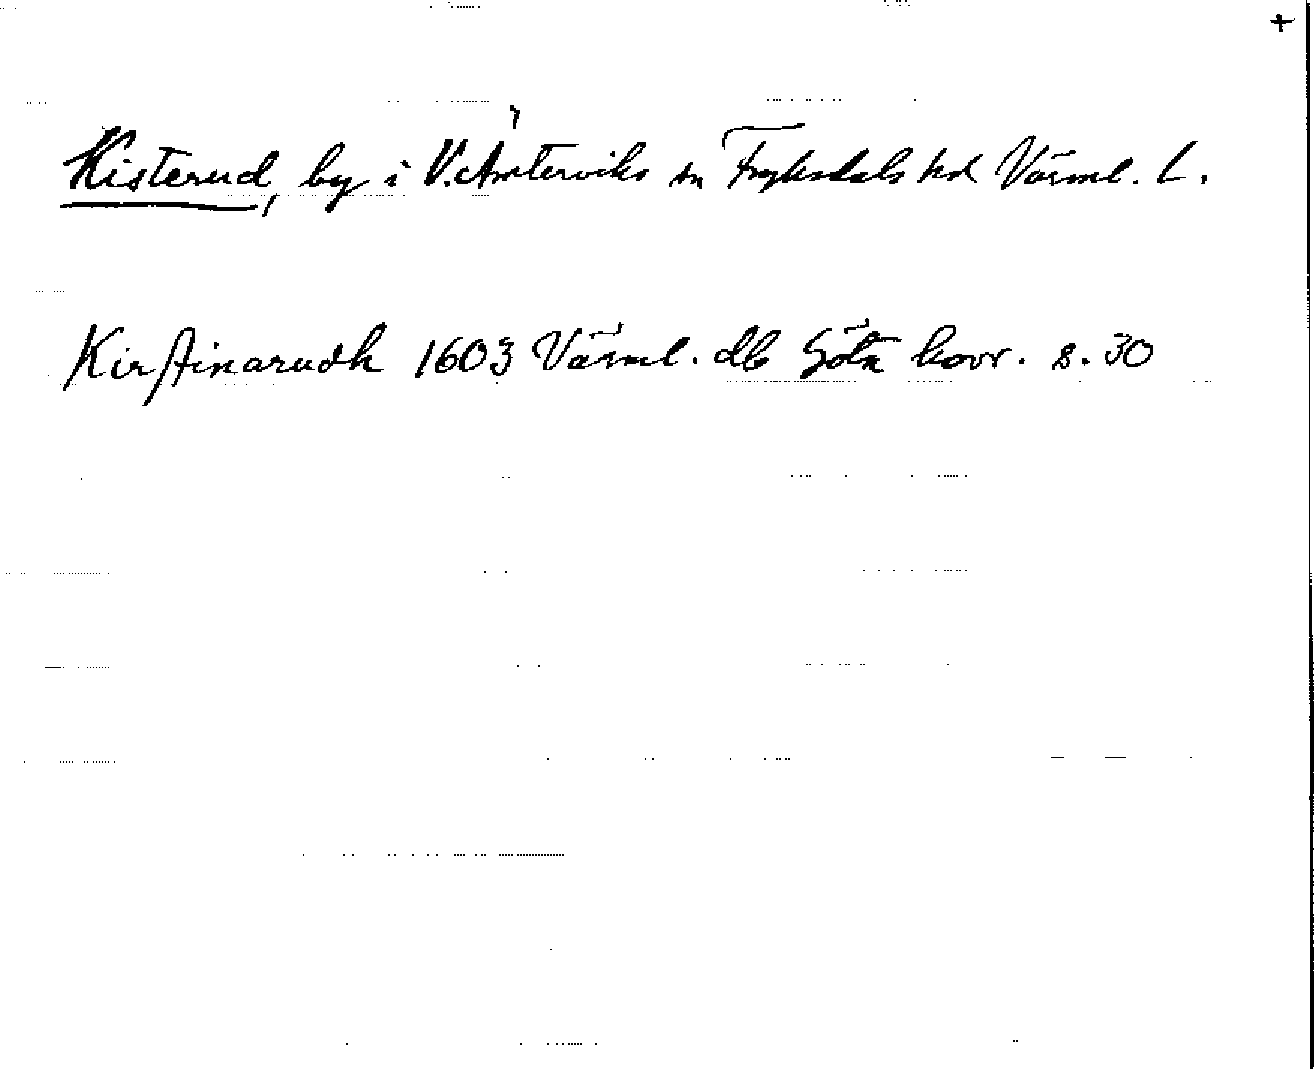 +
Kisterud, by i V. Ämterviks sn Fryksdals hd Värml. L.
Kirstinarudh 1603 Värml. db Göta hovr. s. 30